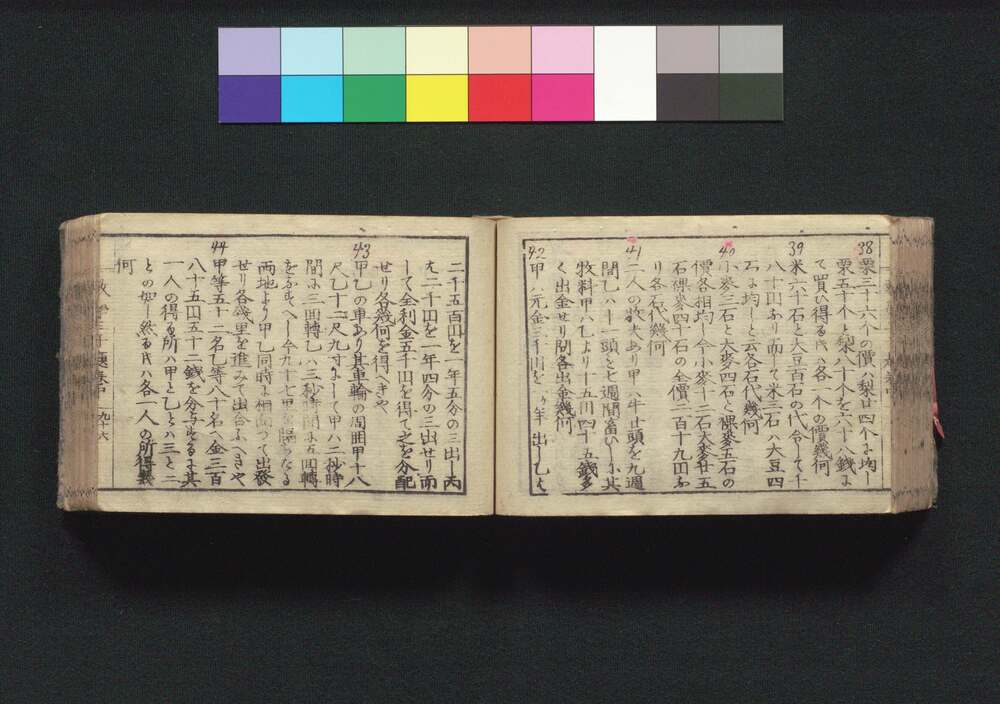 38
栗三十六个の價ハ梨廿四个に均し
栗五十个と梨八十个を六十八錢に
て買ひ得る时ハ各一个の價幾何
39
米六千石と大豆百石の代金して千
八十円ふり而して米三石ハ大豆四
石に均しと云各石代幾何
40
小麥三石と大麥四石と裸麥五石の
價各相均し今小麥十二石大麥廿五
石裸麥四十石の全價二百十九円ふ
り各石代幾何
41
二人の牧夫あり甲ハ牛廿頭を九週
間乙ハ十一頭を七週間畜ひしに其
牧料甲ハ乙より十五円四十五錢多
く出金せり問各出金幾何
42
甲ハ元金三千円を 年出し乙は
二千五百円を一年五分の三出し丙
は二千円を一年四分の三出せり而
して全利金五千円を得て之を分配
せり各幾何を得べきや
43
甲乙の車あり其車輪の周囲甲十八
尺乙十二尺九寸にして甲ハ二秒時
間に三回轉乙ハ三秒時間に五回轉
をふすべし今九十七里 隔 なる
両地より甲乙同時に相向つて出發
せり各幾里を進みて出合ふべきや
44
甲等五十二名乙等八十名へ金三百
八十五円五十二錢を分与せるに其
一人の得る所ハ甲と乙とハ三と二
との如し然る时ハ各一人の所得幾
何
九十六